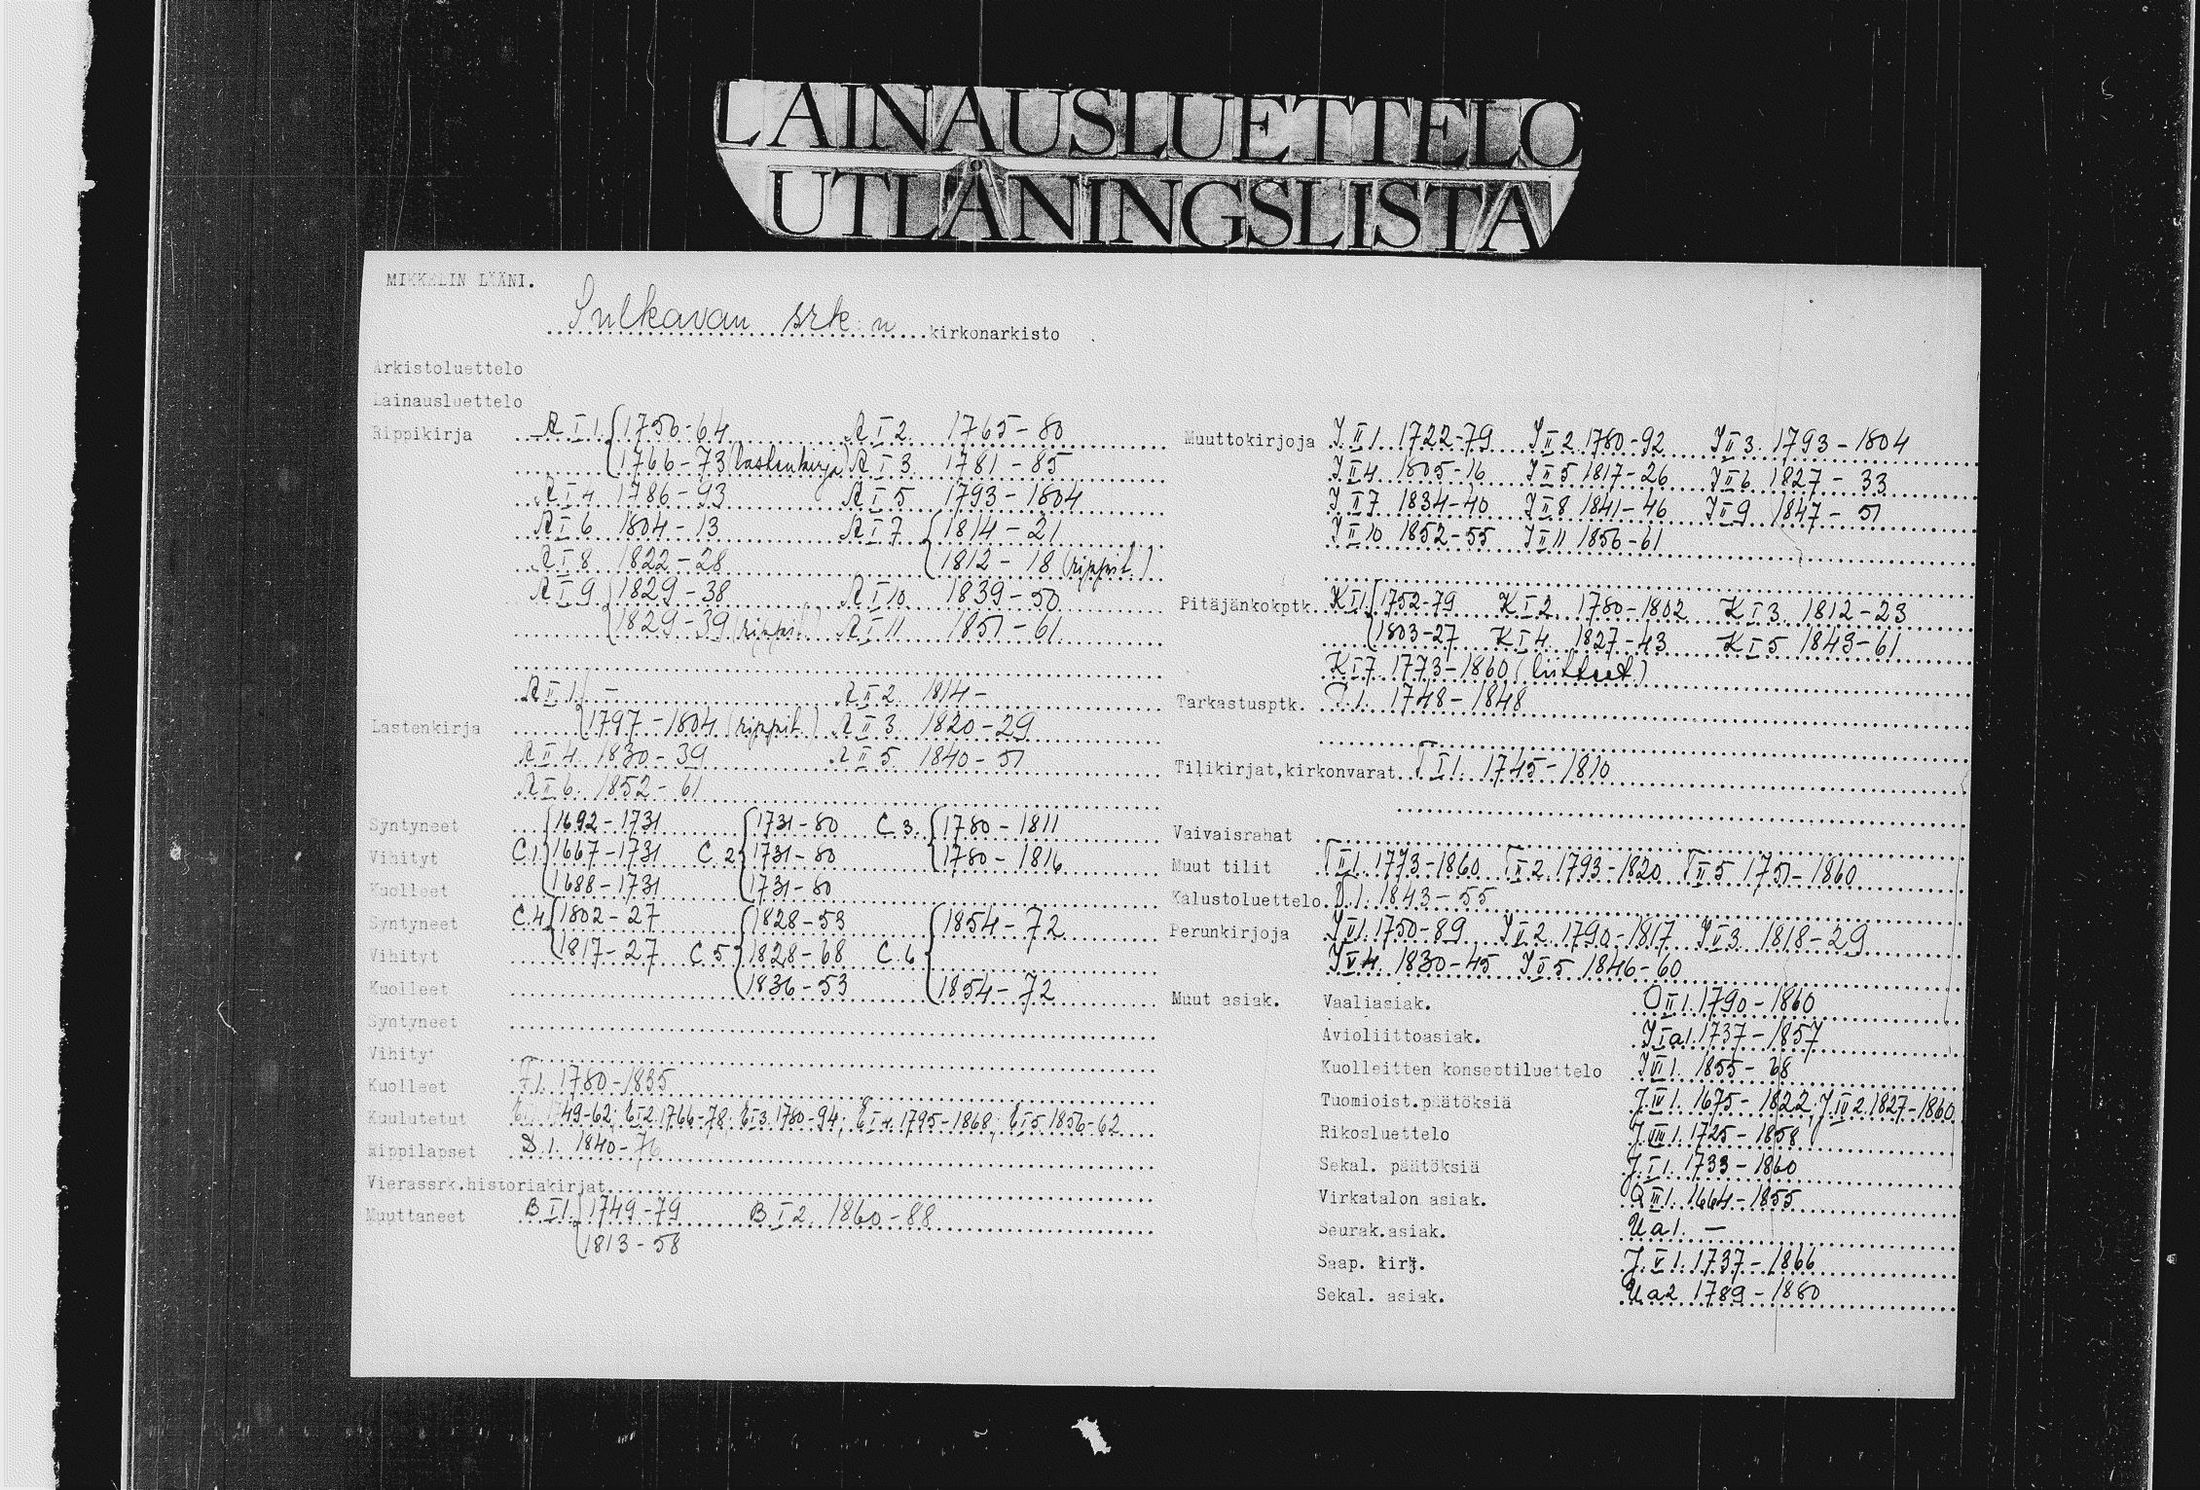 LAINAUSLUETTELO
UTLÅNINGSLISTA
MIKKELIN LÄÄNI.
Sulkavan srk:n kirkonarkisto
Arkistoluettelo
Lainausluettelo
Rippikirja A I 1. 1756-64 A I 2. 1765-80
1766-73 (lastenkirja) A I 3. 1781-85
A I 4 1786-93 A I 5 1793-1804
A I 6 1804-13 A I 7 1814-21
A I 8 1822-28 1812-18 (rippit.)
A I 9 1829-38 A I 10 1839-50
1829-39 (rippit.) A I 11 1851-61
A II 1. - A II 2. 1814-
Lastenkirja 1797-1804 (rippit.) A II 3. 1820-29
A II 4. 1830-39 A II 5 1840-51
A II 6. 1852-61
Syntyneet 1692-1731 1731-80 C 3. 1780-1811
Vihityt C.1 1667-1731 C.2 1731-80 1780-1816
Kuolleet 1688-1731 1731-80
Syntyneet C.4 1802-27 1828-53 1854-72
Vihityt 1817-27 C 5 1828-68 C.6
Kuolleet 1836-53 1854-72
Syntyneet
Vihityt
Kuolleet F1. 1780-1835
Kuulutetut 1749-62; E I 2. 1766-78; E I 3. 1780-94; E I 4. 1795-1868; E I 5 1856-62
Rippilapset D.1. 1840-76
Vierassrk.historiakirjat
Muuttaneet B I 1. 1749-79 B I 2. 1860-88
1813-58
Muuttokirjoja J II 1. 1722-79 J II 2. 1780-92 J II 3. 1793-1804
J II 4 1805-16 J II 5 1817-26 J II 6 1827-33
J II 7 1834-40 J II 8 1841-46 J II 9 1847-51
J II 10 1852-55 J II 11 1856-61
Pitäjänkokptk. K I 1. 1752-79 K I 2. 1780-1802 K I 3 1812-23
1803-27 K I 4. 1827-43 K I 5 1843-61
K I 7. 1773-1860 (liitteet)
Tarkastusptk. P.1. 1748-1848
Tilikirjat,kirkonvarat T I 1. 1745-1810
Vaivaisrahat
Muut tilit T II 1. 1773-1860 T II 2. 1793-1820 T II 5 1751-1860
Kalustoluettelo 1. 1843-55
Perunkirjoja J V 1. 1750-89 J V 2. 1790-1817 J V 3. 1818-29
J V 4. 1830-45 J V 5 1846-60
Muut asiak. Vaaliasiak. O II 1. 1790-1860
Avioliittoasiak. J I a1. 1737-1857
Kuolleitten konseptiluettelo J VI 1. 1855-68
Tuomioist.päätöksiä J IV 1. 1675-1822; J IV 2. 1827-1860
Rikosluettelo J VIII 1. 1725-1858
Sekal. päätöksiä J. I 1. 1733-1860
Virkatalon asiak. O III 1. 1664-1855
Seurak.asiak. U a 1. -
Saap. kirj. J. V 1. 1737-1866
Sekal. asiak. U a 2 1789-1860